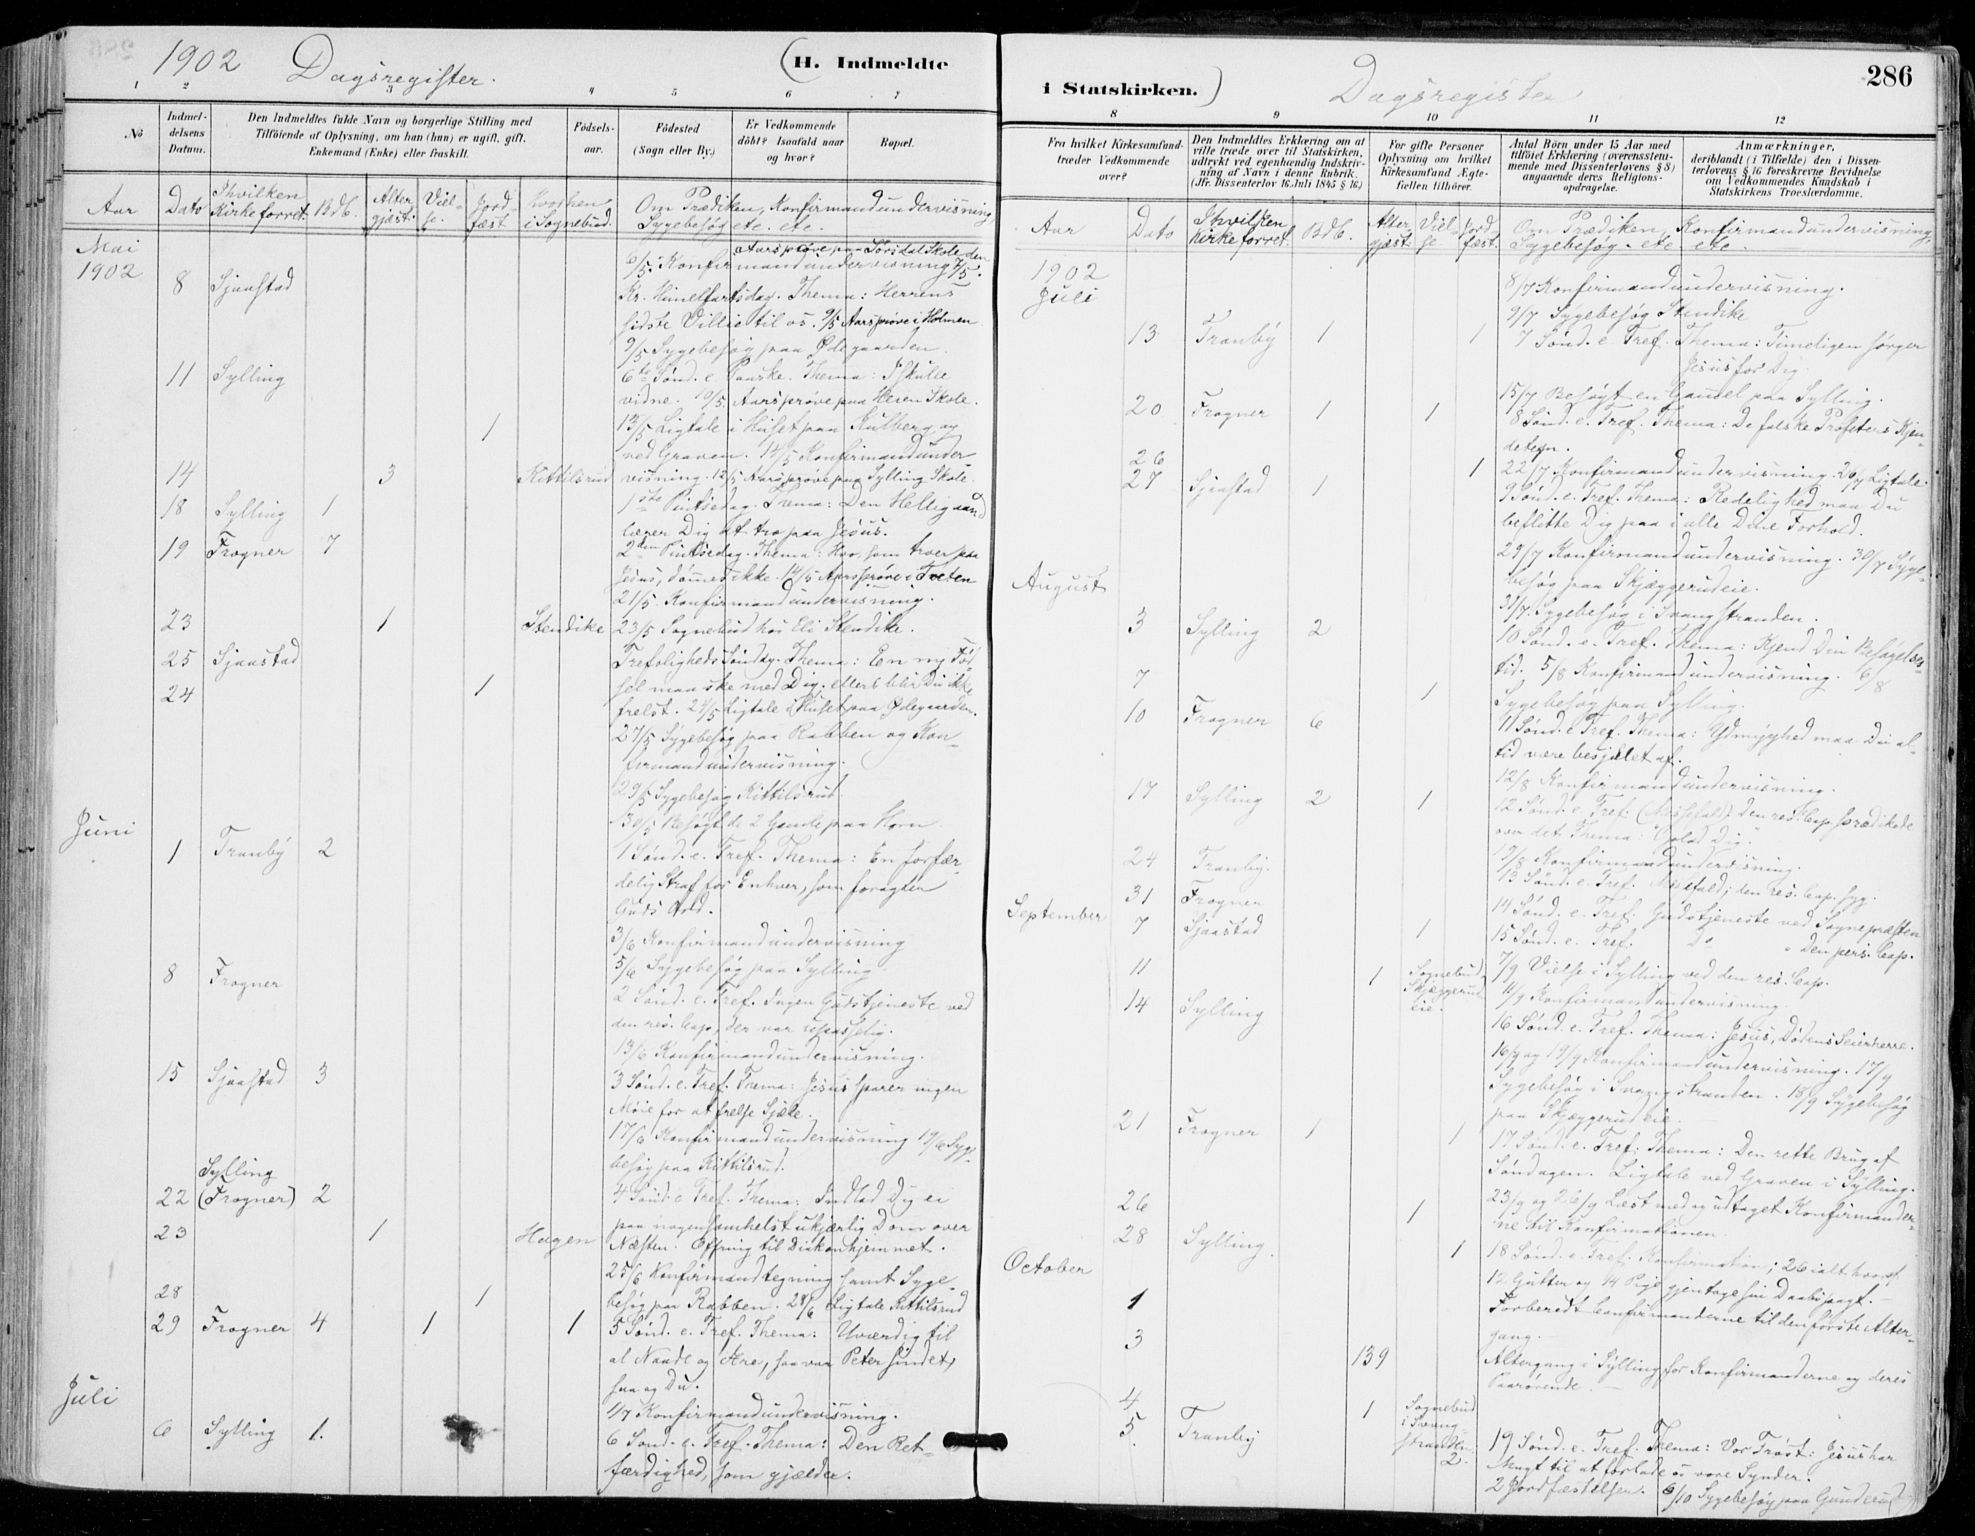 1902 Dagsregister.
(H. Indmeldte
1 2 3 4 5 6 7
No
Indmeldelsens Datum.
Den Indmeldtes fulde Navn og borgerlige Stilling med
Tilføiende af Oplysning, om han (hun) er ugift, gift,
Enkemand (Enke) eller fraskilt.
Fødselsaar.
Fødested
(Sogn eller By.)
Er Vedkommende
døbt? Isaafald naar
og hvor?
Bopæl.
Aar
Dato
Ihvilken
Kirke forret.
Bdb.
Altergjest.
Vielse.
Jordfæst
Hvorhen
i Sognebud.
Om Prædiken, Konfirmandundervisning
Sygebesøg etc. etc.
Mai
1902
Aarsprøve paa Sørsdal Skole den
6/5. Konfirmandundervisning 7/5.
8 Sjaastad
Kr. Himelfartsdag. Thema: Herrens
sidste Villie til os. 9/5 Aarsprøve i Holmen
9/5 Sygebesøg paa Ødegaarden.
11 Sylling
6te Sønd. e. Paaske. Thema: I skulle
vidne. 10/5. Aarsprøve paa Heien Skole.
1
13/5 Ligtale i Huset paa Kulberg og
ved Graven. 14/5 Konfirmandunder-
14 3 Kittilsrud
visning. 12/5 Aarsprøve paa Sylling Skole.
18 Sylling 1
1ste Pintsedag. Thema: Den Hellig aand
lærer Dig at tro paa Jesus.
19 Frogner 7
2den Pintsedag. Thema: Hvo, som troer paa
Jesus, dømmes ikke. 14/5 Aarsprøve i Tveten
21/5. Konfirmandundervisning.
23 1 Stendike
23/5 Sognebud hos Eli Stendike.
25 Sjaastad
Trefoligheds Søndag. Thema: En ny Fød-
24 1
sel maa ske med Dig, ellers blir Du ikke
frelst. 24/5 Ligtale i Huset paa Ødegaarden.
27/5 Sygebesøg paa Rabben og Kon-
firmandundervisning.
29/5 Sygebesøg Kittilsrud
30/5 Besøgt de 2 Gamle paa Horn.
Juni
1 Tranby 2
1 Sønd. e. Tref. Thema: En forfær-
delig Straf for Enhver, som foragter
Guds Ord.
3/6 Konfirmandundervisning
5/6 Sygebesøg paa Sylling.
8 Frogner
2 Sønd. e. Tref. Ingen Gudstjeneste ved
den res. Cap., der var upasselig.
13/6 Konfirmandundervisning.
15 Sjaastad 3
3 Sønd. e. Tref. Thema: Jesus sparer ingen
Møie for at frelse Sjæle.
17/6 Konfirmandundervisning 19/6 Syge-
besøg paa Kittilsrud.
Sylling
22 (Frogner) 2
4 Sønd. e. Tref. Thema: Indlad Dig ei
23 1 Hagen
paa nogensomhelst ukjærlig Dom over
Næsten. Offring til Diakonhjemmet.
25/6 Konfirmandtegning samt Syge-
28 1
besøg paa Rabben. 28/6 Ligtale Kittilsrud
29 Frogner 4 1 1
5 Sønd. e. Tref. Thema: Uværdig til
al Naade og Ære, saa var Peter sindet,
saa og Du.
Juli
1/7 Konfirmandundervisning.
6 Sylling 1.
6 Sønd. e. Tref. Thema: Den Ret-
færdighed, som gjælder.
i Statskirken.) Dagsregister 286
8 9 10 11 12
Fra hvilket Kirkesamfund
træder Vedkommende
over?
Den Indmeldtes Erklæring om at
ville træde over til Statskirken,
udtrykt ved egenhændig Indskriv-
ning af Navn i denne Rubrik.
(Jfr. Dissenterlov 16. Juli 1845 § 16.)
For gifte Personer
Oplysning om hvilket
Kirkesamfund Ægte-
fællen tilhører.
Antal Børn under 15 Aar med
tilføiet Erklæring (overensstem-
mende med Dissenterlovens § 8)
angaaende deres Religions-
opdragelse.
Anmærkninger,
deriblandt (i Tilfælde) den i Dissen-
terlovens § 16 foreskrevne Bevidnelse
om Vedkommendes Kundskab i
Statskirkens Troeslærdomme.
Aar
Dato
Ihvilken
Kirke forret.
Bdb.
Altergjæst.
Vielse
Jordfæst.
Om Prædiken, Konfirmandundervisning,
Sygebesøg. etc. etc.
1902
Juli
8/7 Konfirmandundervisning.
9/7 Sygebesøg Stendike
13 Tranby 1 1
7 Sønd. e. Tref. Thema: Timeligen sørger
Jesus for Dig.
15/7 Besøgt en Gammel paa Sylling.
20 Frogner 1 1
8 Sønd. e. Tref. Thema: De falske Profeters Kjen-
detegn.
26 1
22/7 Konfirmandundervisning. 26/7 Ligtale.
27 Sjaastad 1
9 Sønd. e. Tref. Thema: Redelighed maa Du
beflitte Dig paa i alle Dine Forhold.
29/7 Konfirmandundervisning. 30/7 Syge-
besøg paa Skjæggerudeie.
August
31/7 Sygebesøg i Svangstranden.
3 Sylling 2
10 Sønd. e. Tref. Thema: Kjend Din Besøgelses-
tid. 5/8 Konfirmandundervisning. 6/8
7 1
Sygebesøg paa Sylling.
10 Frogner 6
11 Sønd. e. Tref. Thema: Ydmyghed maa Du al-
tid være besjælet af.
12/8 Konfirmandundervisning.
17 Sylling 2 1
12 Sønd. e. Tref. (Messefald) den res. Cap. prædikede
over det Thema: "Oplad Dig."
19/8 Konfirmandundervisning.
24 Tranby.
13 Sønd. e. Tref. Messefald; den res. Cap. syg.
31 Frogner
14 Sønd. e. Tref. Gudstjeneste ved Sognepræsten
September
7 Sjaastad 1
15 Sønd. e. Tref. Do " Den pers. Cap.
7/9 Vielse i Sylling ved den res. Cap.
11 1 Sognebud
Skjæggerud
eie.
11/9 Konfirmandundervisning.
14 Sylling
16 Sønd. e. Tref. Thema: Jesus, Dødens Seierherre.
16/9 og 19/9 Konfirmandundervisning. 17/9
Sygebesøg i Svangstranden. 18/9 Sygebesøg
paa Skjæggerudeie.
21 Frogner 1 1
17 Sønd. e. Tref. Thema: Den rette Brug af
Søndagen. Ligtale ved Graven i Sylling.
26 1
23/9 og 26/9 Læst med og udtaget Konfirmander-
ne til Konfirmationen.
28 Sylling. 1
18 Sønd. e. Tref. Konfirmation; 26 ialt hvoraf
12 Gutter og 14 Piger gjentoge sin Daabspagt.
October
1
Forberedt Confirmanderne til den første Alter-
gang.
3 139
Altergang i Sylling for Konfirmanderne og deres
Paarørende.
4 1 Sognebud
i Svang
stranden
5. Tranby 2.
19 Sønd. e. Tref. Thema: Vor Trøst: Jesus har
Magt til at forlade os vore Synder.
2 Jordfæstelser. 6/10 Sygebesøg paa Gunderud